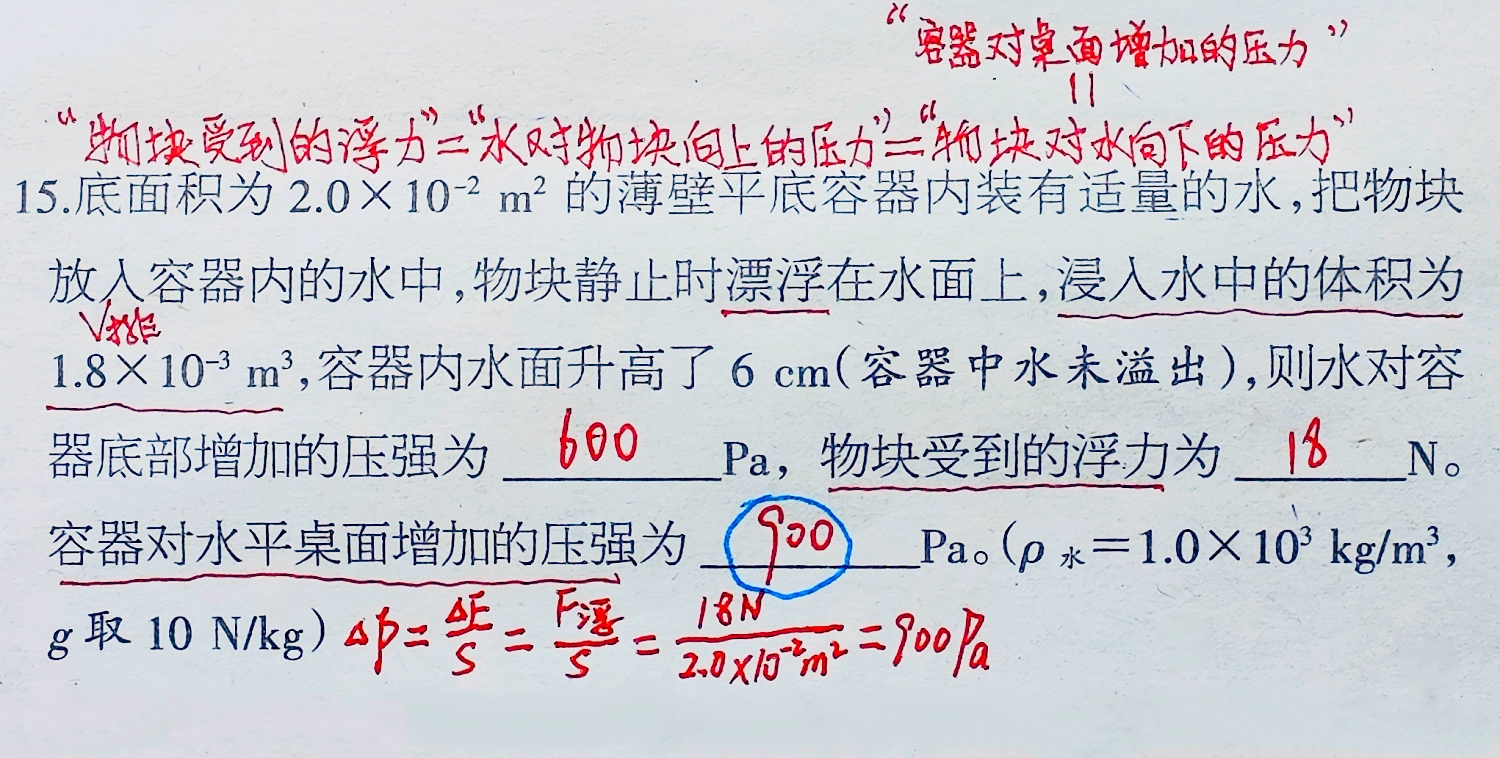 “容器对桌面增加的压力”
||
“物块受到的浮力”=“水对物块向上的压力”=“物块对水向下的压力”
15.底面积为 2.0×10⁻² m² 的薄壁平底容器内装有适量的水,把物块
放入容器内的水中,物块静止时漂浮在水面上,浸入水中的体积为
V排
1.8×10⁻³ m³,容器内水面升高了 6 cm(容器中水未溢出),则水对容
器底部增加的压强为 600 Pa,物块受到的浮力为 18 N。
容器对水平桌面增加的压强为 900 Pa。(ρ水=1.0×10³ kg/m³,
g 取 10 N/kg) Δp=ΔF/S=F浮/S=18N/2.0×10⁻²m²=900Pa